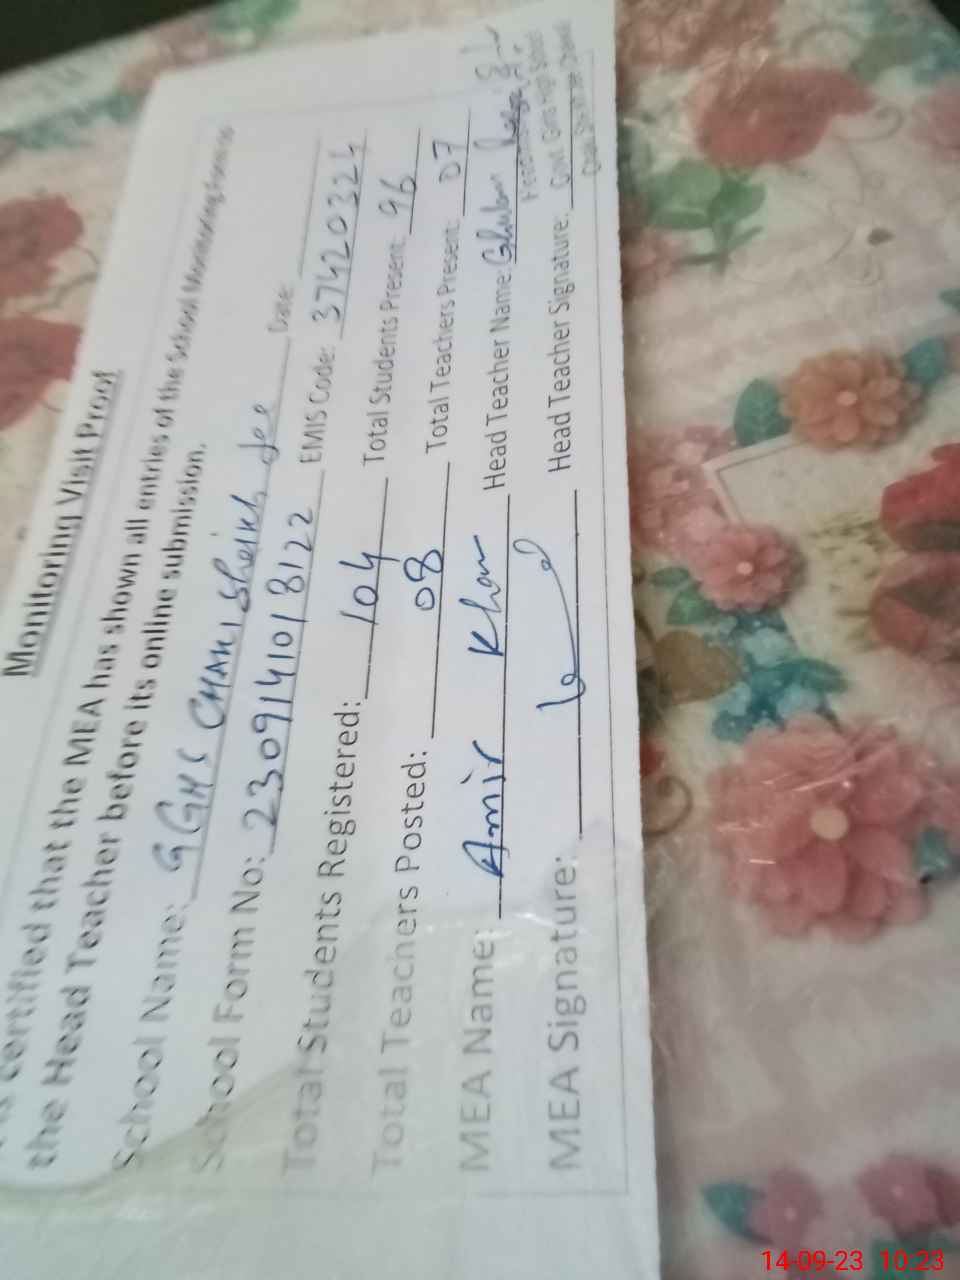 Monitoring Visit Proof
is certified that the MEA has shown all entries of the School Monitoring Form to
the Head Teacher before its online submission.
School Name: GGHS CHAKI Sheikh Jee Date:
School Form No: 2309141018122 EMIS Code: 37420324
Total Students Registered: 104 Total Students Present: 96
Total Teachers Posted: 08 Total Teachers Present: 07
MEA Name: Amir Khan Head Teacher Name:
MEA Signature: Head Teacher Signature:
Govt. Girls High School
14-09-23 10:23